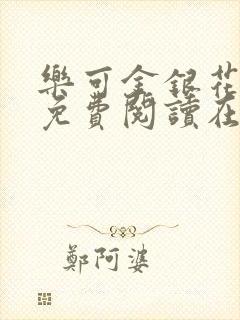 樂可金銀花
免費閱讀在
鄭阿婆